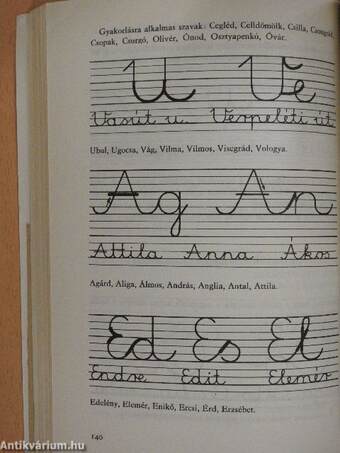 Gyakorlásra alkalmas szavak: Cegléd, Celldömölk, Csilla, Csongrád,
Csopak, Csurgó, Olivér, Ónod, Osztyapenkó, Óvár.
U Ve
Vasút u. Vérpeléti út
Ubul, Ugocsa, Vág, Vilma, Vilmos, Visegrád, Vologya.
Ag An
Attila Anna Ákos
Agárd, Aliga, Álmos, András, Anglia, Antal, Attila.
Ed Es El
Endre Edit Elemér
Edelény, Elemér, Enikő, Ercsi, Érd, Erzsébet.
140
Antikvárium.hu